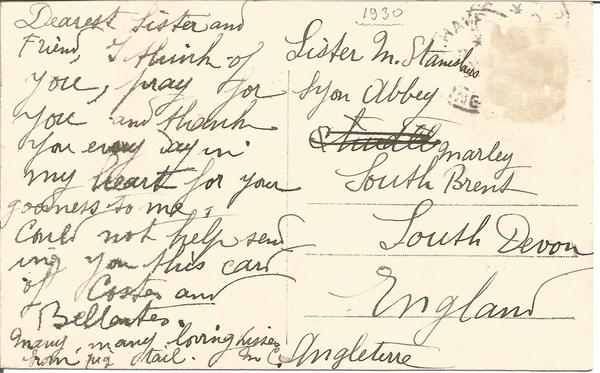 1930
Dearest Sister and
Friend, I think of
you, pray for
you and thank
you every day in
my heart for your
goodness to me,
Could not help send
ing you this card
of Costes and
Bellontes.
Many, many loving kisses
from pig tail. M. C.
Sister M. Stanislaus
Syon Abbey
Marley
South Brent
South Devon
England
Angleterre